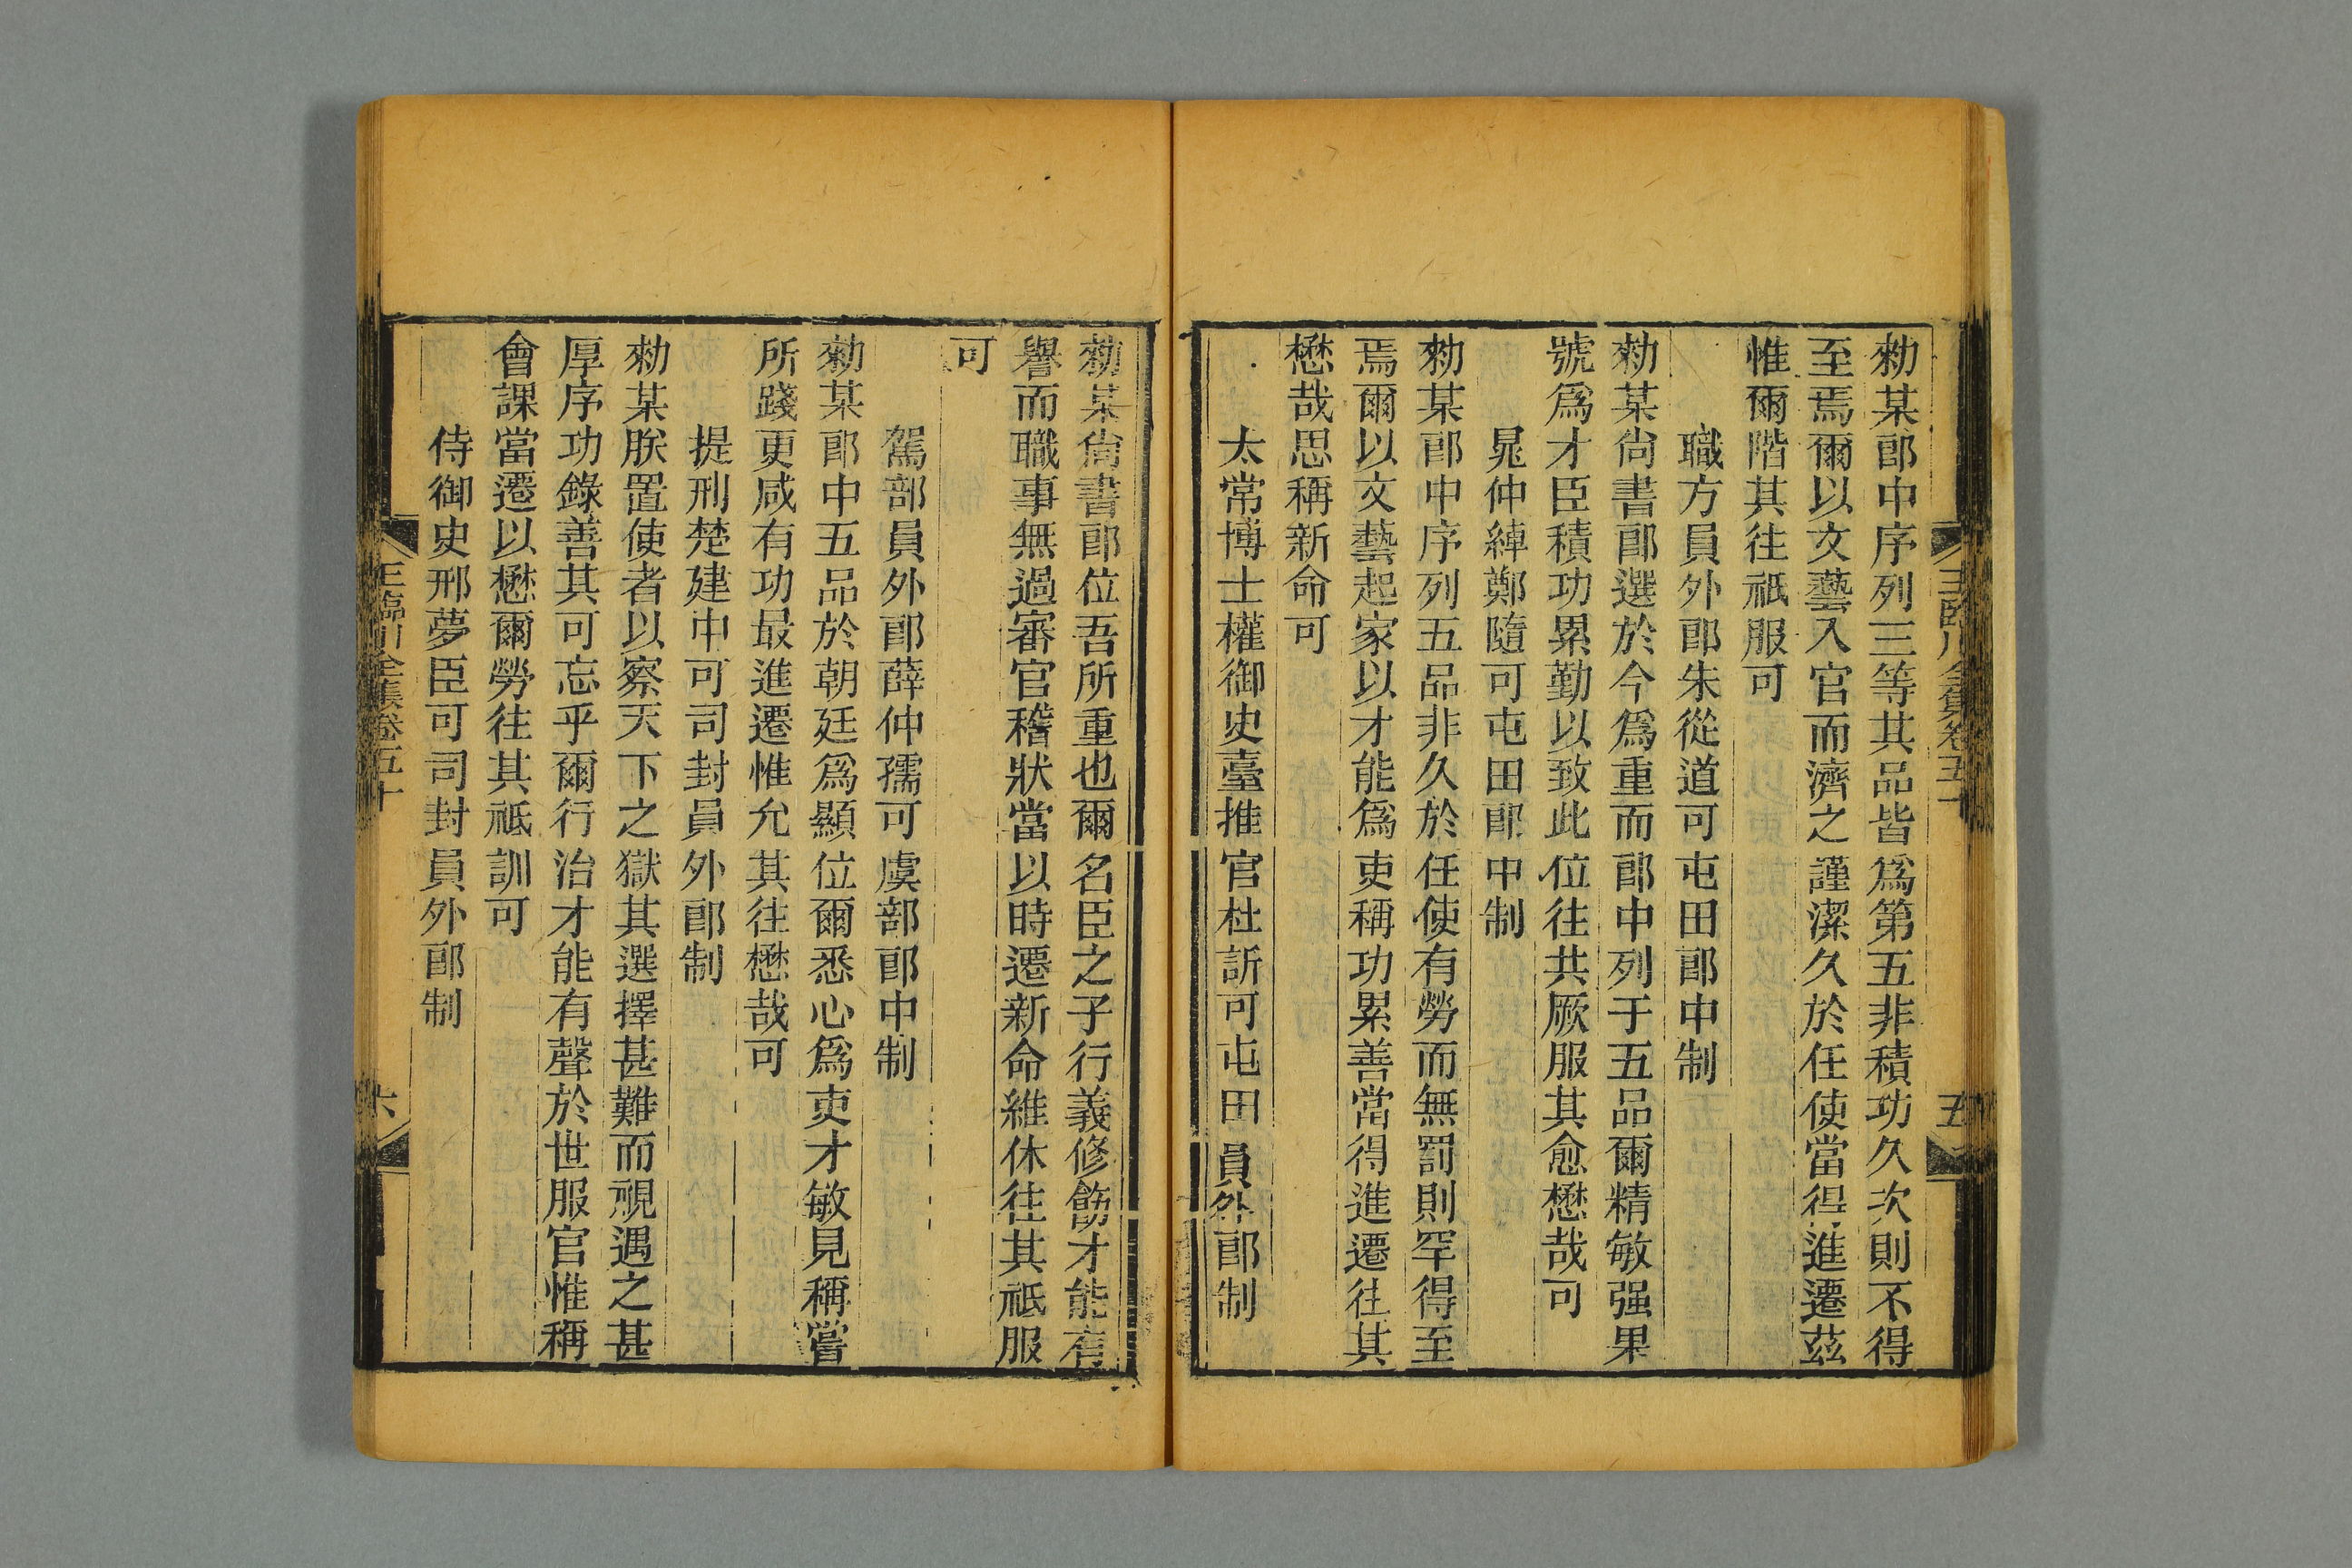 王臨川全集卷五十
五
勑某郎中序列三等其品皆爲第五非積功久次則不得
至焉爾以文藝入官而濟之謹潔久於任使當得進遷茲
惟爾階其往祇服可
職方員外郎朱從道可屯田郎中制
勑某尙書郎選於今爲重而郎中列于五品爾精敏强果
號爲才臣積功累勤以致此位往共厥服其愈懋哉可
晁仲綽鄭隨可屯田郎中制
勑某郎中序列五品非久於任使有勞而無罰則罕得至
焉爾以文藝起家以才能爲吏稱功累善當得進遷往其
懋哉思稱新命可
太常博士權御史臺推官杜訢可屯田員外郎制
勑某尙書郎位吾所重也爾名臣之子行義修飭才能有
譽而職事無過審官稽狀當以時遷新命維休往其祇服
可
駕部員外郎薛仲孺可虞部郎中制
勑某郎中五品於朝廷爲顯位爾悉心爲吏才敏見稱嘗
所踐更咸有功最進遷惟允其往懋哉可
提刑楚建中可司封員外郎制
勑某朕置使者以察天下之獄其選擇甚難而覗遇之甚
厚序功錄善其可忘乎爾行治才能有聲於世服官惟稱
會課當遷以懋爾勞往其祗訓可
侍御史邢夢臣可司封員外郎制
王臨川全集卷五十
六